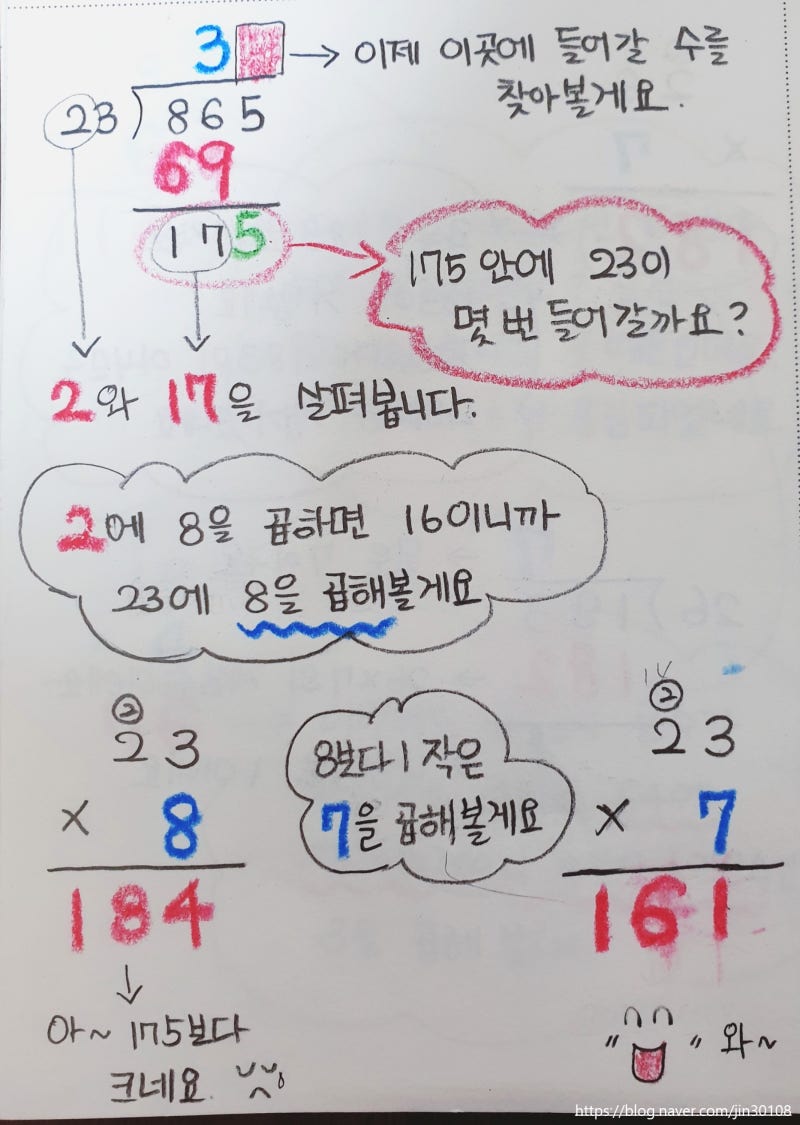 3 → 이제 이곳에 들어갈 수를
찾아볼게요.
23)865
69
175
175 안에 23이
몇 번 들어갈까요?
2와 17을 살펴봅니다.
2에 8을 곱하면 16이니까
23에 8을 곱해볼게요
②
23
× 8
184
아~ 175보다
크네요.
8보다 1 작은
7을 곱해볼게요
②
23
× 7
161
" " 와~
https://blog.naver.com/jin30108